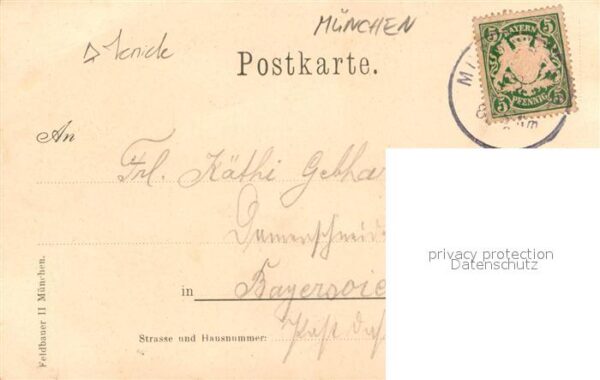 MÜNCHEN
Postkarte.
BAYERN
5 5
5 5
PFENNIG
An
Frl. Käthi Gebhar
Damenschneide
in Bayersoie
Strasse und Hausnummer: Post
Feldbauer II München.
privacy protection
Datenschutz